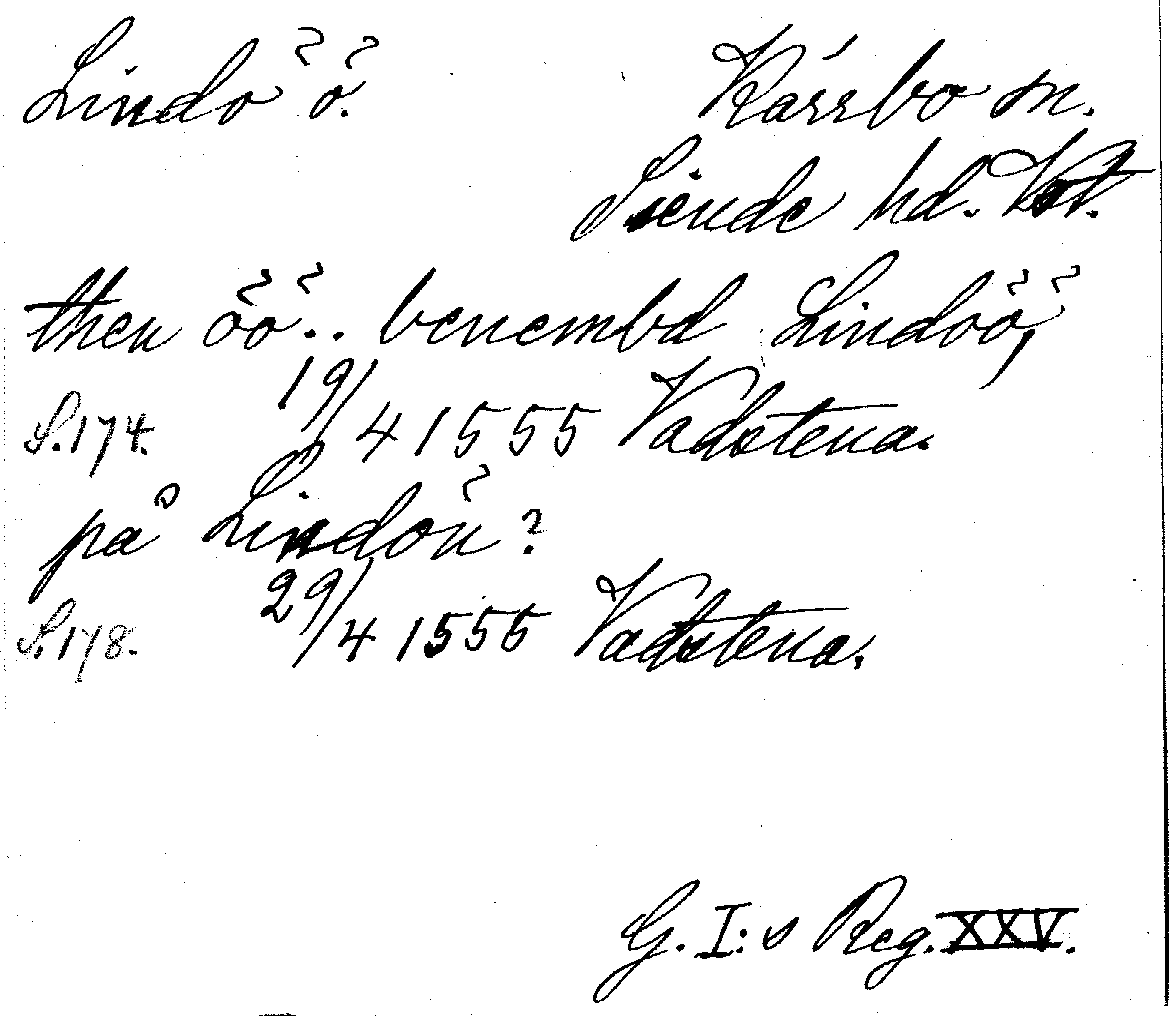 Lindö ö. Kärrbo sn.
Siende hd. Vst.
then öö.. benembd Lindöö,
S.174. 19/4 1555 Vadstena.
på Lindön?
S.178. 29/4 1555 Vadstena.
G. I:s Reg. XXV.